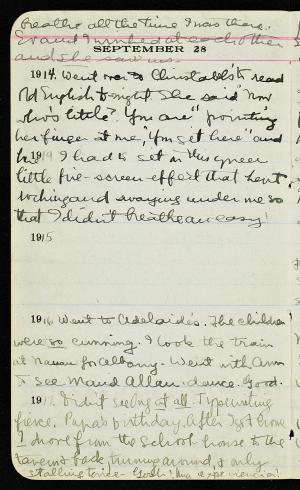 breathe all the time I was there.
Ev and I winked at each other
and she saw us.
SEPTEMBER 28
1914 Went over to Christabel's to read
Old English tonight. She said "Now
who's little? You are" pointing
her finger at me, "You set here" and
1919 I had to set in this queer
little fire-screen effect that kept
rocking and swaying under me so
that I didn't breathe an easy!
1915
1916 Went to Adelaide's. The children
were so cunning. I took the train
at for Albany. Went with Ann
to see Maud Allan dance. Good.
191 Didn't see Ong at all. Typewriting
fierce. Papa's birthday. After I got home
I drove from the school house to the
tavern & back, turning around, & only
stalling twice - Gosh! my experience!